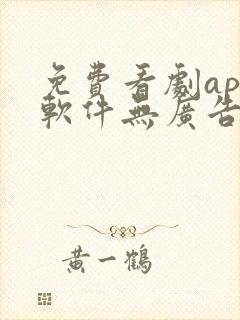 免費看劇ap
軟件無廣告
黃一鶴